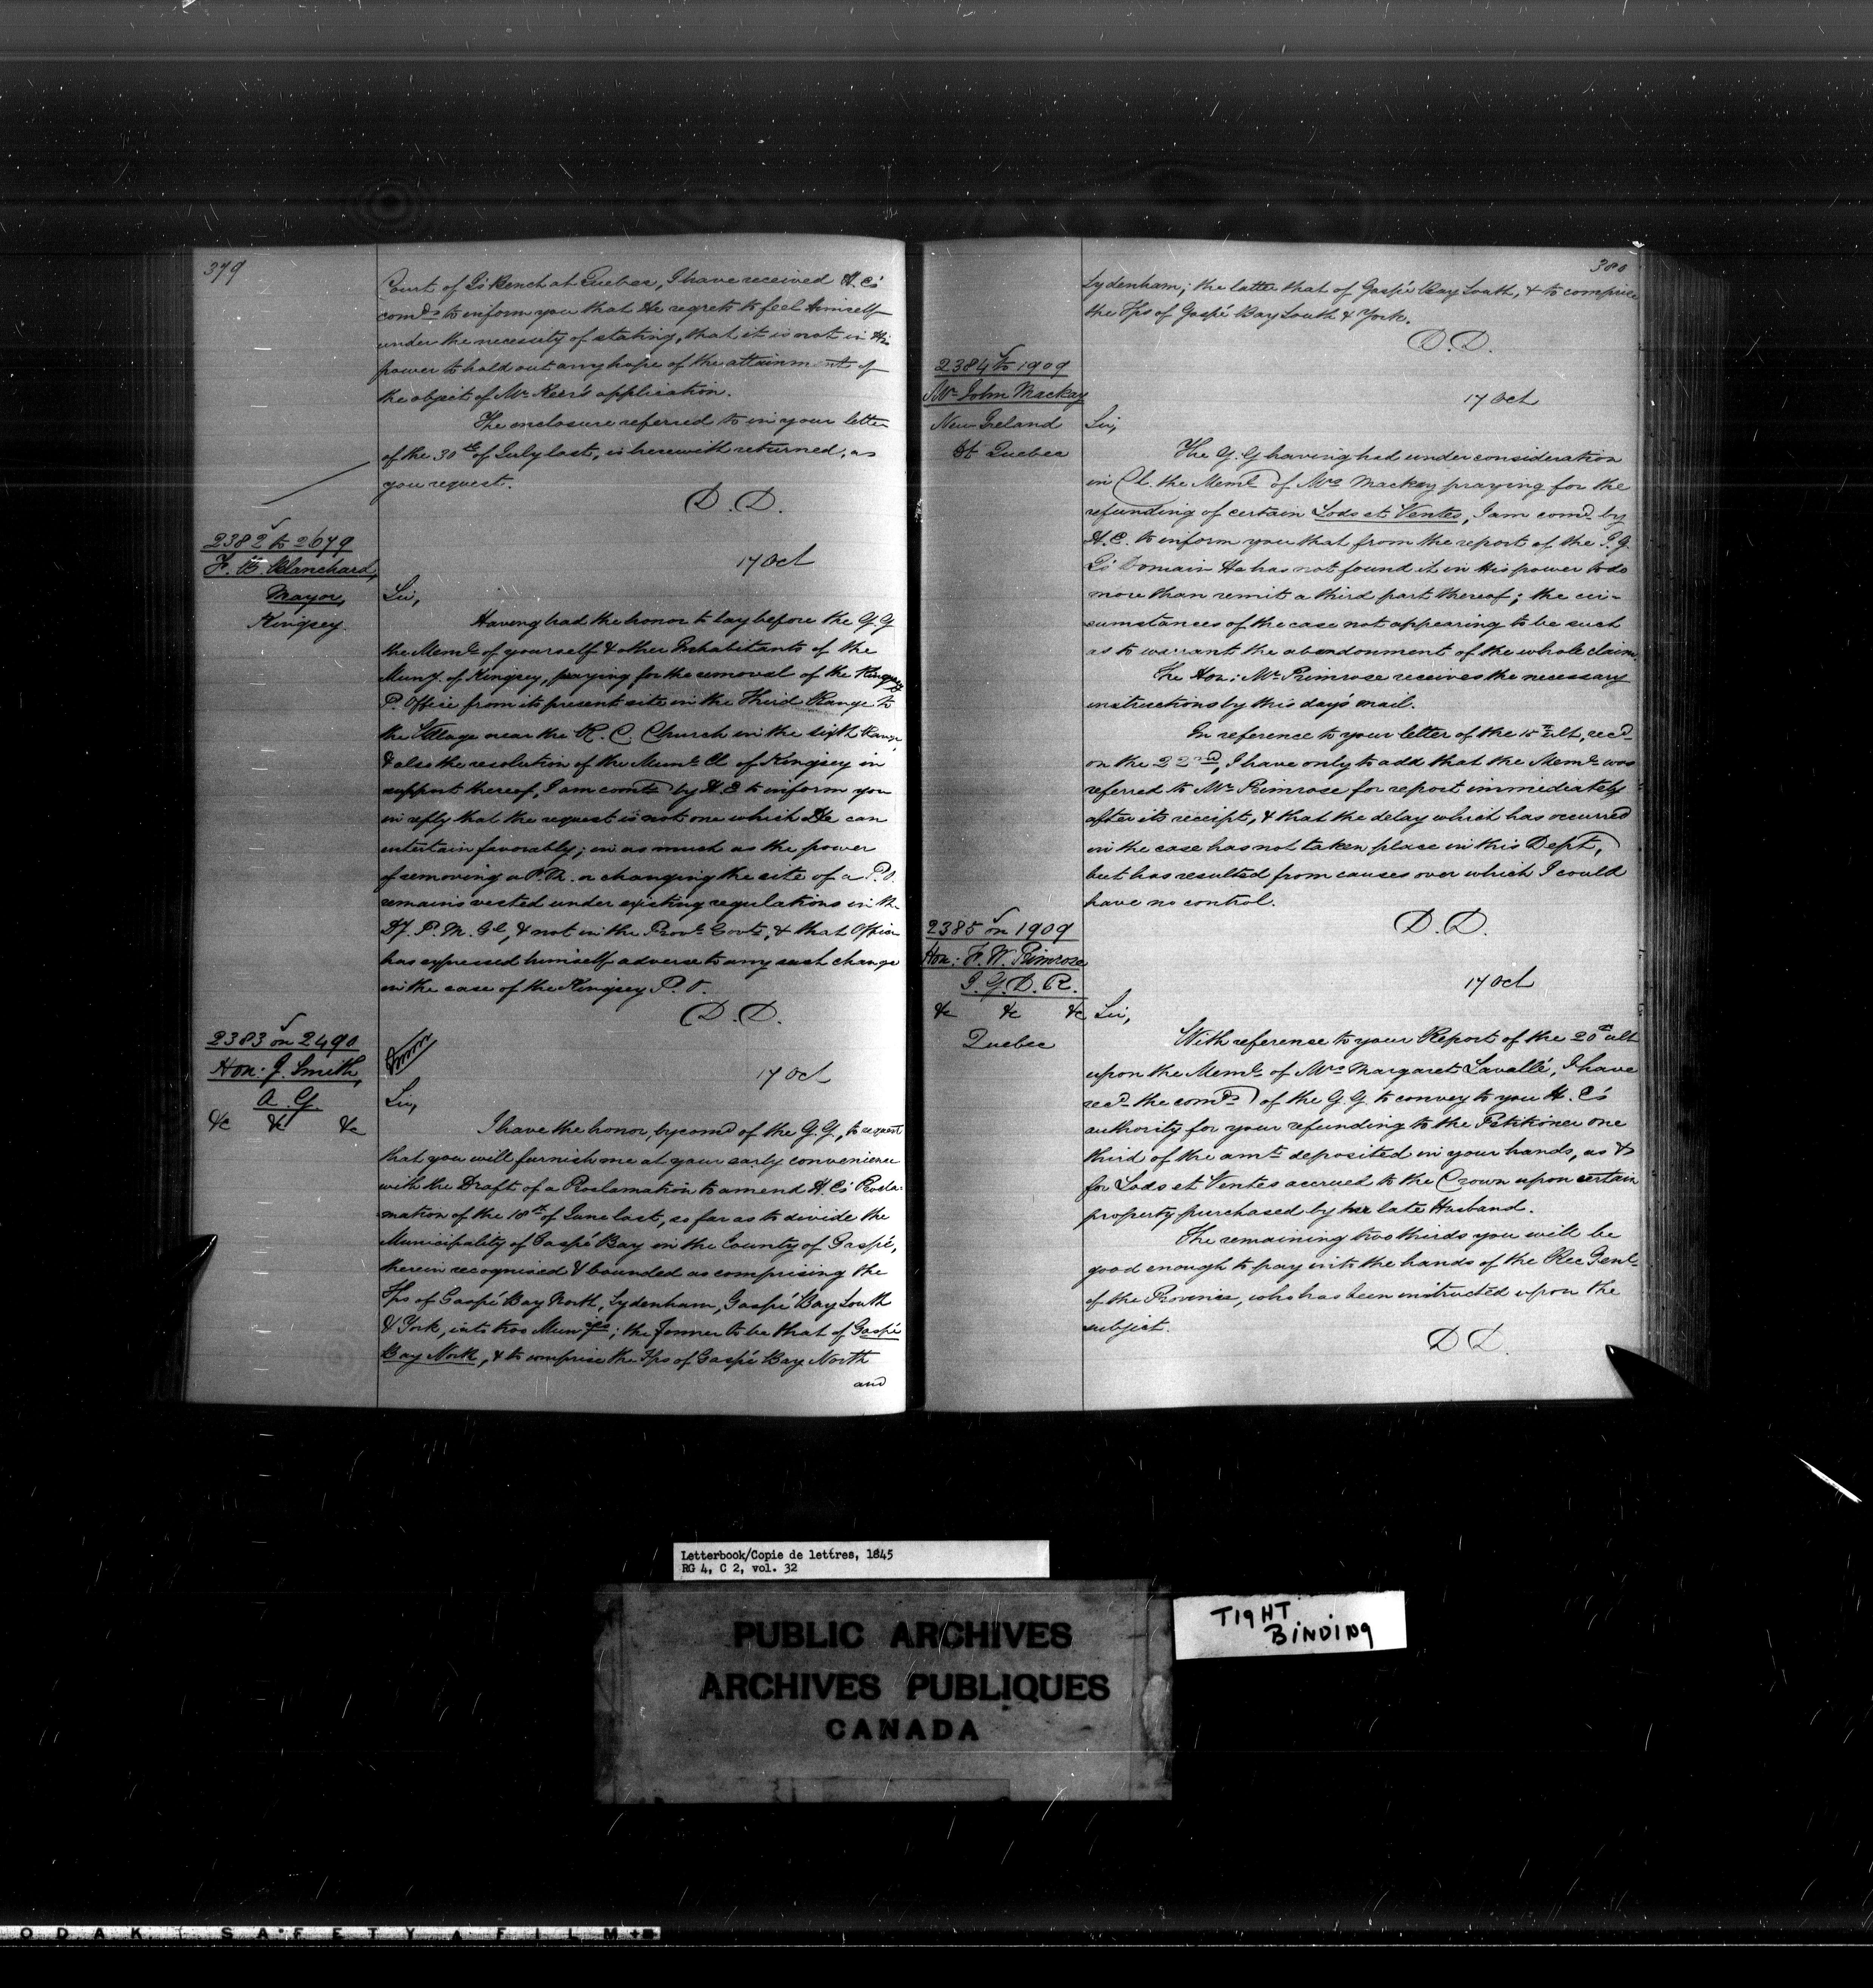 379
Court of Qs Bench at Quebec, I have received H. Es
comds to inform you that He regrets to feel Himself
under the necessity of stating, that it is not in His
power to hold out any hope of the attainment of
the object of Mr Keer's application.
The enclosure referred to in your letter
of the 30th of July last, is herewith returned, as
you request.
D. D.
2382 to 2679
F. B. Blanchard,
Mayor,
Kingsey.
17 Oct
Sir,
Having had the honor to lay before the G. G
the Meml of yourself & other Inhabitants of the
Muny. of Kingsey, praying for the removal of the Kingsey
P. Office from its present site in the Third Range to
the Village near the R. C. Church in the sixth Range,
& also the resolution of the Munl Cl of Kingsey in
support thereof, I am comd by H. E to inform you
in reply that the request is not one which He can
entertain favorably; in as much as the power
of removing a P. M. or changing the site of a P. O.
remains vested under existing regulations in the
Dy. P. M. Gl, & not in the Provl Govt, & that Officer
has expressed himself adverse to any such change
in the case of the Kingsey P. O.
D. D.
2383 on 2490
Hon: J. Smith,
A. G.
&c &c &c
17 Oct
Sir,
I have the honor, by comd of the G. G., to request
that you will furnish me at your early convenience
with the Draft of a Proclamation to amend H. Es Procla-
mation of the 18th of June last, so far as to divide the
Municipality of Gaspé Bay in the County of Gaspé,
therein recognised & bounded as comprising the
Tps of Gaspé Bay North, Sydenham, Gaspé Bay South
& York, into two Munyies; the former to be that of Gaspé
Bay North, & to comprise the Tps of Gaspé Bay North
and
380
Sydenham; the latter that of Gaspé Bay South, & to comprise
the Tps of Gaspé Bay South & York.
D. D.
2384 to 1909
Mr John Mackay
New Ireland
St Quebec
17 Oct
Sir,
The G. G having had under consideration
in Cl. the Meml of Mrs Mackay praying for the
refunding of certain Lods et Ventes, I am comd by
H. E. to inform you that from the report of the I. G.
Qs Domain He has not found it in His power to do
more than remit a third part thereof; the cir-
cumstances of the case not appearing to be such
as to warrant the abandonment of the whole claim.
The Hon: Mr Primrose receives the necessary
instructions by this day's mail.
In reference to your letter of the 15th ult, recd
on the 22nd, I have only to add that the Meml was
referred to Mr Primrose for report immediately
after its receipt, & that the delay which has occurred
in the case has not taken place in this Dept,
but has resulted from causes over which I could
have no control.
D. D.
2385 on 1909
Hon: F. W. Primrose
I. G. D. R.
&c &c &c
Quebec
17 Oct
Sir,
With reference to your Report of the 20th ult
upon the Meml of Mrs Margaret Lavallé, I have
recd the comds of the G. G. to convey to you H. E's
authority for your refunding to the Petitioner one
third of the amt deposited in your hands, as &
for Lods et Ventes accrued to the Crown upon certain
property purchased by her late Husband.
The remaining two thirds you will be
good enough to pay into the hands of the Rec Genl
of the Province, who has been instructed upon the
subject.
D D.
Letterbook/Copie de lettres, 1845
RG 4, C 2, vol. 32
PUBLIC ARCHIVES
ARCHIVES PUBLIQUES
CANADA
TIGHT
BINDING
ODAK SAFETY A FILM